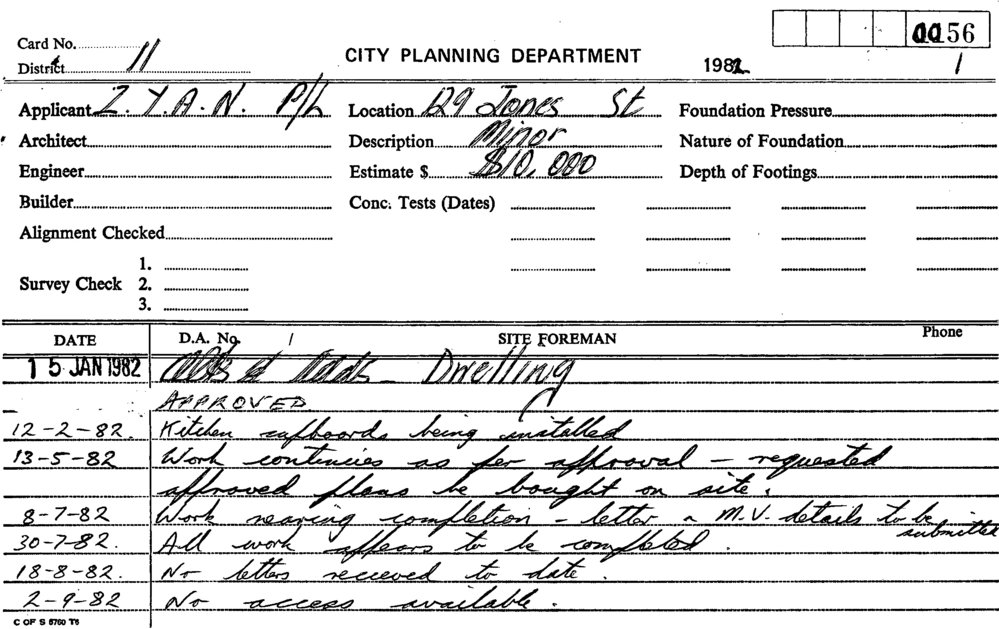 0056
Card No.
District 11
CITY PLANNING DEPARTMENT
1982 1
Applicant Z. Y. A. N. P/L Location 129 Jones St Foundation Pressure
Architect Description Minor Nature of Foundation
Engineer Estimate $ $10,000 Depth of Footings
Builder Conc. Tests (Dates)
Alignment Checked
1.
Survey Check 2.
3.
DATE D.A. No. / SITE FOREMAN Phone
15 JAN 1982 Alts & Adds - Dwelling
APPROVED
12-2-82. Kitchen cupboards being installed
13-5-82 Work continues as per approval - requested
approved plans be bought on site.
8-7-82 Work nearing completion - letter M.V. details to be
submitted
30-7-82. All work appears to be completed.
18-8-82. No letters recieved to date.
2-9-82 No access available.
C OF S 5760 T6